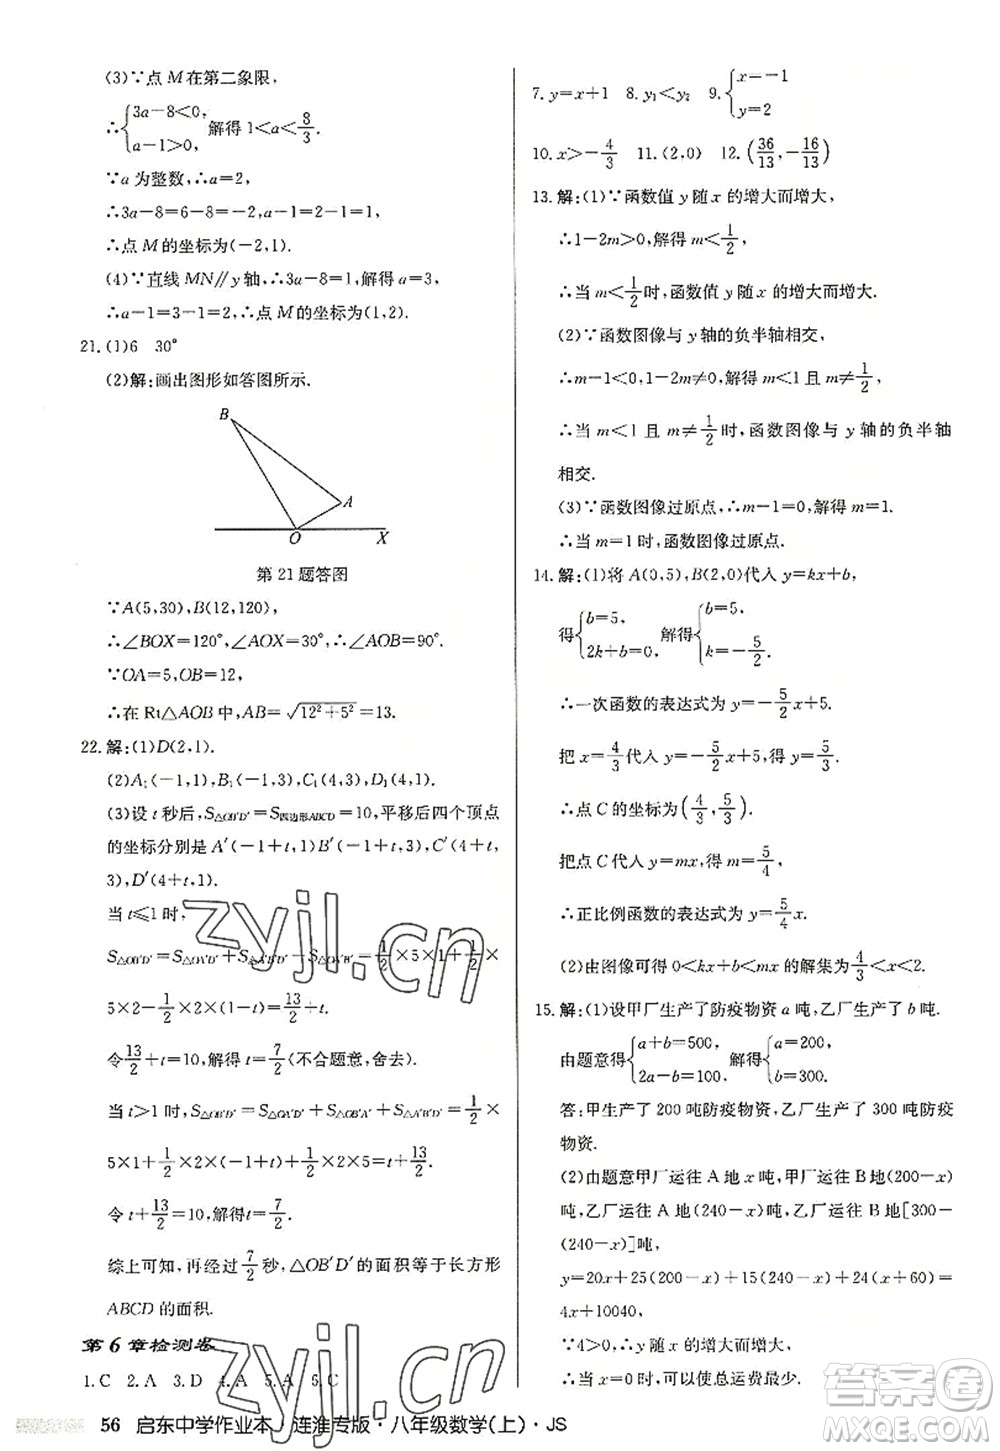 (3)∵点 M 在第二象限,
∴{3a-8<0, a-1>0 解得 1<a<8/3.
∵a 为整数,∴a=2,
∴3a-8=6-8=-2,a-1=2-1=1,
∴点 M 的坐标为(-2,1).
(4)∵直线 MN∥y 轴,∴3a-8=1,解得 a=3,
∴a-1=3-1=2,∴点 M 的坐标为(1,2).
21.(1)6 30°
(2)解:画出图形如答图所示.
B
A
O X
第 21 题答图
∵A(5,30),B(12,120),
∴∠BOX=120°,∠AOX=30°,∴∠AOB=90°.
∵OA=5,OB=12,
∴在 Rt△AOB 中,AB=√(12²+5²)=13.
22.解:(1)D(2,1).
(2)A₁(-1,1),B₁(-1,3),C₁(4,3),D₁(4,1).
(3)设 t 秒后,S△OB′D′=S四边形ABCD=10,平移后四个顶点
的坐标分别是 A′(-1+t,1)B′(-1+t,3),C′(4+t,
3),D′(4+t,1).
当 t≤1 时,
S△OB′D′=S△OA′D′+S△OA′B′=1/2×5×1+1/2×
5×2-1/2×2×(1-t)=13/2+t.
令 13/2+t=10,解得 t=7/2(不合题意,舍去).
当 t>1 时,S△OB′D′=S△OA′D′+S△OB′A′+1/2×
5×1+1/2×2×(t-1)+1/2×5×2=t+13/2.
令 t+13/2=10,解得 t=7/2.
综上可得,当 t=7/2 秒,△OB′D′的面积等于长方形
ABCD 的面积.
第 6 章检测卷
1.C 2.A 3.D 4.A 5.A 6.C
7.y=x+1 8.y₁<y₂ 9.{x=-1 y=2
10.x>-4/3 11.(2,0) 12.(36/13,-16/13)
13.解:(1)∵函数值 y 随 x 的增大而增大,
∴1-2m>0,解得 m<1/2,
∴当 m<1/2时,函数值 y 随 x 的增大而增大.
(2)∵函数图像与 y 轴的负半轴相交,
∴m-1<0,1-2m≠0,解得 m<1 且 m≠1/2,
∴当 m<1 且 m≠1/2时,函数图像与 y 轴的负半轴
相交.
(3)∵函数图像过原点,∴m-1=0,解得 m=1.
∴当 m=1 时,函数图像过原点.
14.解:(1)将 A(0,5),B(2,0)代入 y=kx+b,
得{b=5, 2k+b=0, 解得{b=5, k=-5/2.
∴一次函数的表达式为 y=-5/2x+5.
把 x=4/3代入 y=-5/2x+5,得 y=5/3,
∴点 C 的坐标为(4/3,5/3).
把点 C 代入 y=mx,得 m=5/4,
∴正比例函数的表达式为 y=5/4x.
(2)由图像可得 0<kx+b<mx 的解集为4/3<x<2.
15.解:(1)设甲厂生产了防疫物资 a 吨,乙厂生产了 b 吨.
由题意得{a+b=500, 2a-b=100, 解得{a=200, b=300.
答:甲生产了 200 吨防疫物资,乙厂生产了 300 吨防疫
物资.
(2)由题意甲厂运往 A 地 x 吨,甲厂运往 B 地(200-x)
吨,乙厂运往 A 地(240-x)吨,乙厂运往 B 地[300-
(240-x)]吨,
y=20x+25(200-x)+15(240-x)+24(x+60)=
4x+10040,
∵4>0,∴y 随 x 的增大而增大,
56 启东中学作业本 连淮专版·八年级数学(上)·JS
zyjl.cn
答案圈
MXQE.COM